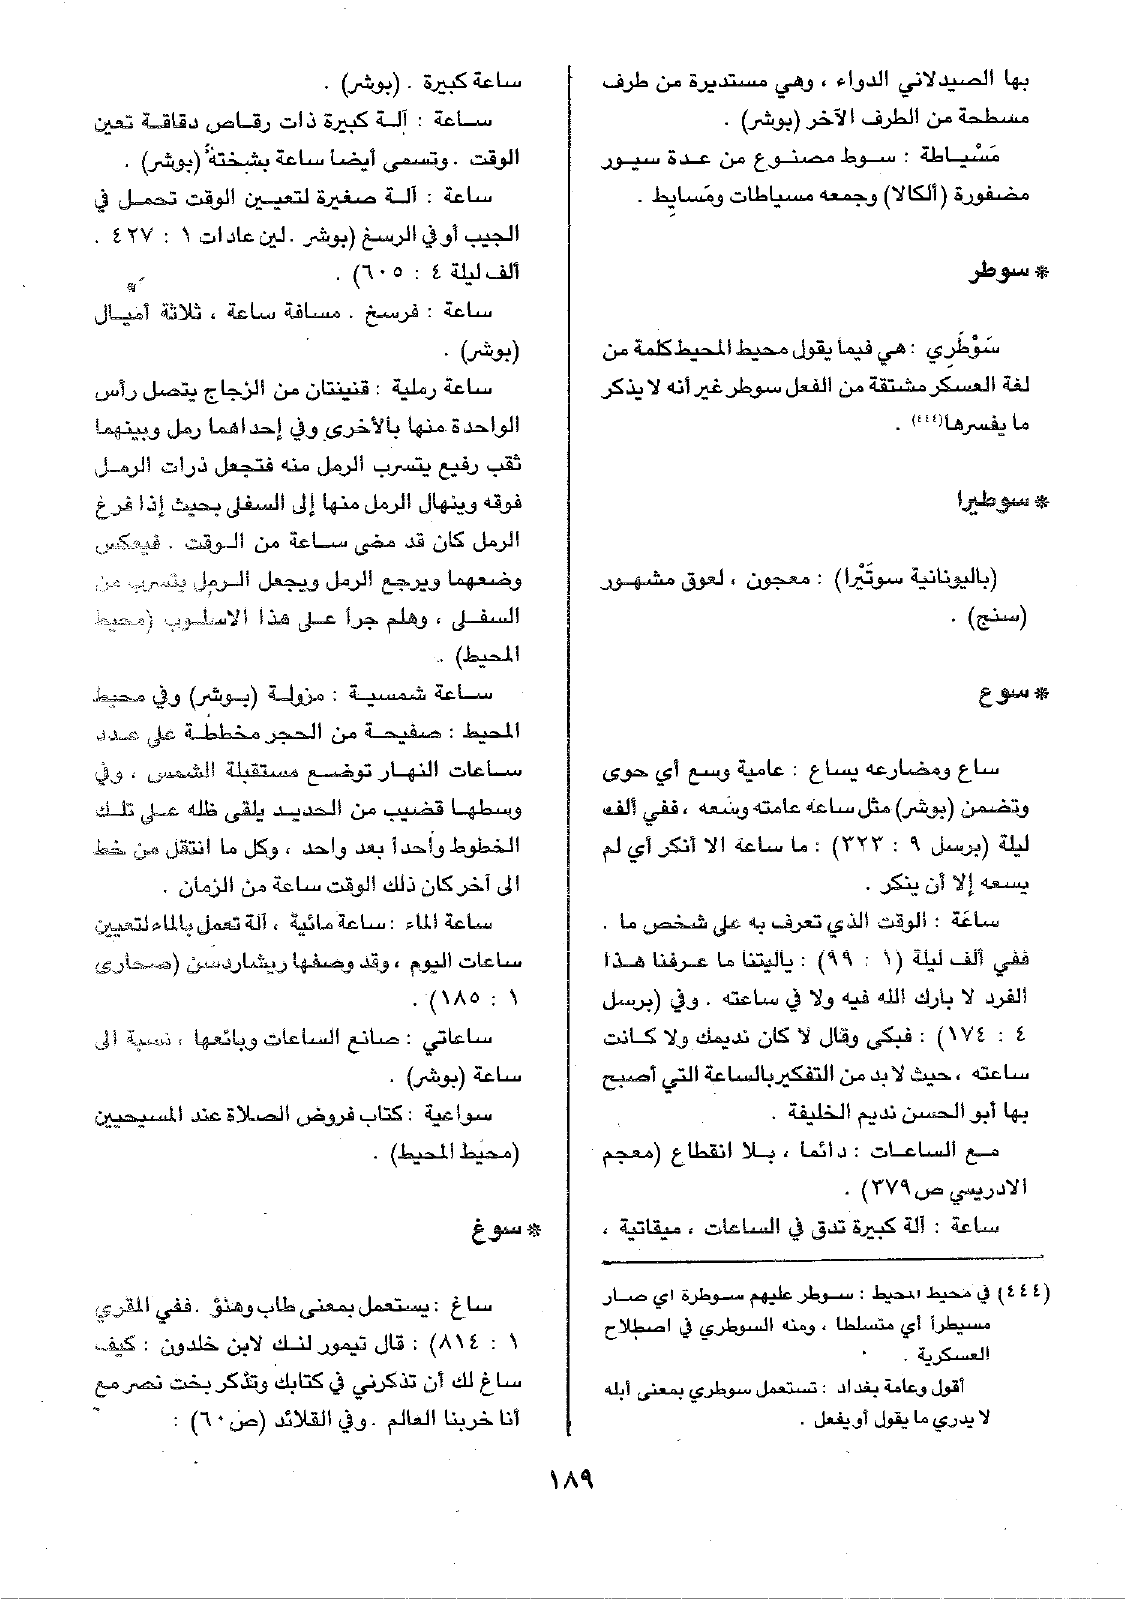 بها الصيدلاني الدواء ، وهي مستديرة من طرف
مسطحة من الطرف الآخر (بوشر) .
مَسْيِاطة : سوط مصنوع من عدة سيور
مضفورة (ألكالا) وجمعه مسياطات ومَسايِط .
* سوطر
سَوْطَرِي : هي فيما يقول محيط المحيط كلمة من
لغة العسكر مشتقة من الفعل سوطر غير أنه لا يذكر
ما يفسرها(٤٤٤) .
* سوطيرا
(باليونانية سوتَيْرا) : معجون ، لعوق مشهور
(سنج) .
* سوع
ساع ومضارعه يساع : عامية وسع أي حوى
وتضمن (بوشر) مثل ساعه عامته وسَعه ، ففي ألف
ليلة (برسل ٩ : ٣٢٣) : ما ساعة الا أنكر أي لم
يسعه إلا أن ينكر .
ساعَة : الوقت الذي تعرف به على شخص ما .
ففي ألف ليلة (١ : ٩٩) : ياليتنا ما عرفنا هذا
القرد لا بارك الله فيه ولا في ساعته . وفي (برسل
٤ : ١٧٤) : فبكى وقال لا كان نديمك ولا كانت
ساعته ، حيث لا بد من التفكير بالساعة التي أصبح
بها أبو الحسن نديم الخليفة .
مع الساعات : دائما ، بلا انقطاع (معجم
الادريسي ص ٣٧٩) .
ساعة : آلة كبيرة تدق في الساعات ، ميقاتية ،
(٤٤٤) في محيط المحيط : سوطر عليهم سوطرة اي صار
مسيطراً أي متسلطا ، ومنه السوطري في اصطلاح
العسكرية .
أقول وعامة بغداد : تستعمل سوطري بمعنى أبله
لا يدري ما يقول أو يفعل .
ساعة كبيرة . (بوشر) .
ساعة : آلة كبيرة ذات رقاص دقاقة تعين
الوقت . وتسمى أيضا ساعة بشختة (بوشر) .
ساعة : آلة صغيرة لتعيين الوقت تحمل في
الجيب أو في الرسغ (بوشر . لين عادات ١ : ٤٢٧ .
ألف ليلة ٤ : ٦٠٥) .
ساعة : فرسخ . مسافة ساعة ، ثلاثة أميال
(بوشر) .
ساعة رملية : قنينتان من الزجاج يتصل رأس
الواحدة منها بالأخرى وفي إحداهما رمل وبينهما
ثقب رفيع يتسرب الرمل منه فتجعل ذرات الرمل
فوقه وينهال الرمل منها إلى السفلى بحيث إذا فرغ
الرمل كان قد مضى ساعة من الوقت . فيعكس
وضعهما ويرجع الرمل ويجعل الرمل يتسرب من
السفلى ، وهلم جرا على هذا الاسلوب (محيط
المحيط) .
ساعة شمسية : مزولة (بوشر) وفي محيط
المحيط : صفيحة من الحجر مخططة على عدد
ساعات النهار توضع مستقبلة الشمس ، وفي
وسطها قضيب من الحديد يلقى ظله على تلك
الخطوط واحداً بعد واحد ، وكل ما انتقل من خط
الى آخر كان ذلك الوقت ساعة من الزمان .
ساعة الماء : ساعة مائية ، آلة تعمل بالماء لتعيين
ساعات اليوم ، وقد وصفها ريشاردسن (صحارى
١ : ١٨٥) .
ساعاتي : صانع الساعات وبائعها ، نسبة الى
ساعة (بوشر) .
سواعية : كتاب فروض الصلاة عند المسيحيين
(محيط المحيط) .
* سوغ
ساغ : يستعمل بمعنى طاب وهنؤ . ففي المقري
١ : ٨١٤) : قال تيمور لنك لابن خلدون : كيف
ساغ لك أن تذكرني في كتابك وتذكر بخت نصر مع
أنا خربنا العالم . وفي القلائد (ص ٦٠) :
١٨٩